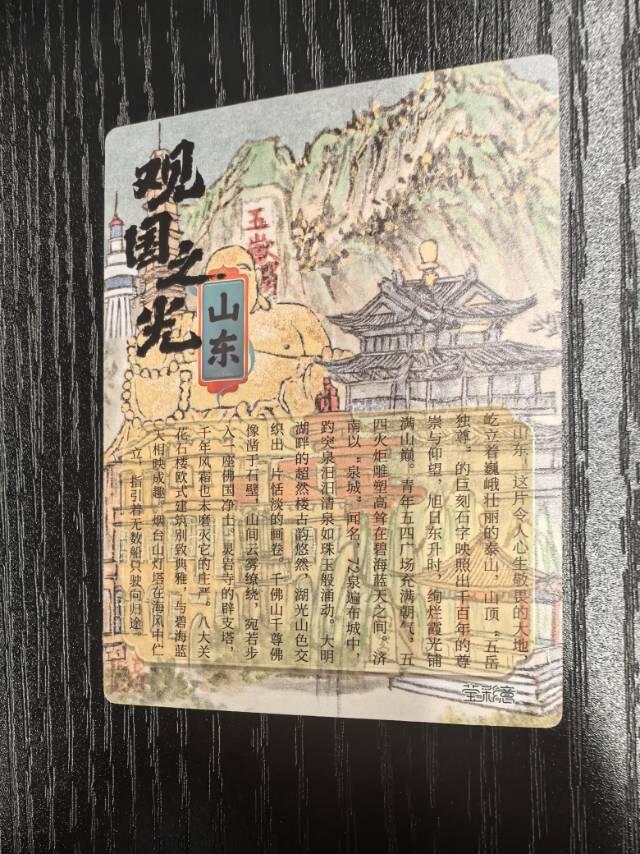 观国之光
山东
五嶽
山东，这片令人心生敬畏的大地
屹立着巍峨壮丽的泰山，山顶“五岳
独尊”的巨刻石字映照出千百年的尊
崇与仰望，旭日东升时，绚烂霞光铺
满山巅。青年五四广场充满朝气，五
四火炬雕塑高耸在碧海蓝天之间。济
南以“泉城”闻名，72泉遍布城中，
趵突泉汩汩清泉如珠玉般涌动。大明
湖畔的超然楼古韵悠然，湖光山色交
织出一片恬淡的画卷。千佛山千尊佛
像凿于石壁，山间云雾缭绕，宛若步
入一座佛国净土。灵岩寺的辟支塔，
千年风霜也未磨灭它的庄严。八大关
花石楼欧式建筑别致典雅，与碧海蓝
天相映成趣。烟台山灯塔在海风中伫
立，指引着无数船只驶向归途